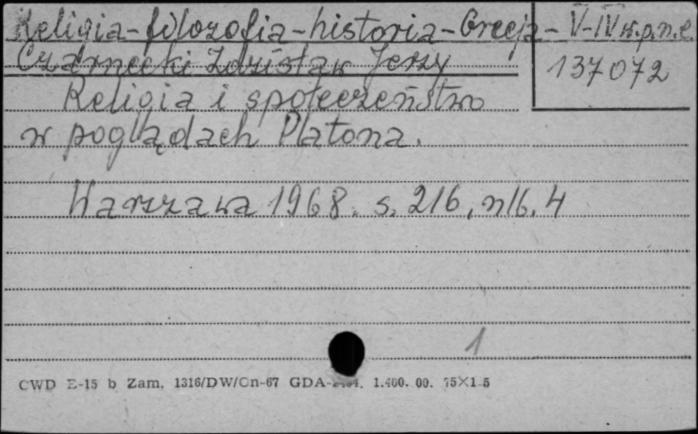 Religia-filozofia-historia-Grecja-V-IV w.p.n.e.
Czarnecki Zdzisław Jerzy
137072
Religia i społeczeństwo
w poglądach Platona.
Warszawa 1968. s. 216, nlb. 4
1
CWD E-15 b Zam. 1316/DW/On-67 GDA- 1.400.00. 75×1 5